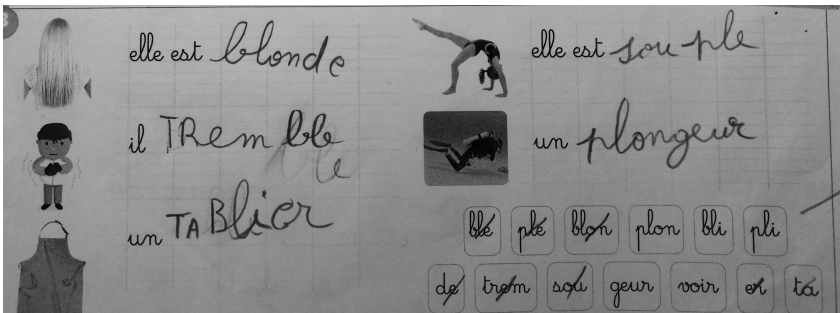 elle est blonde
il TRemble
un TABlier
elle est souple
un plongeur
ble ple blon plon bli pli
de trem sou geur voir er ta